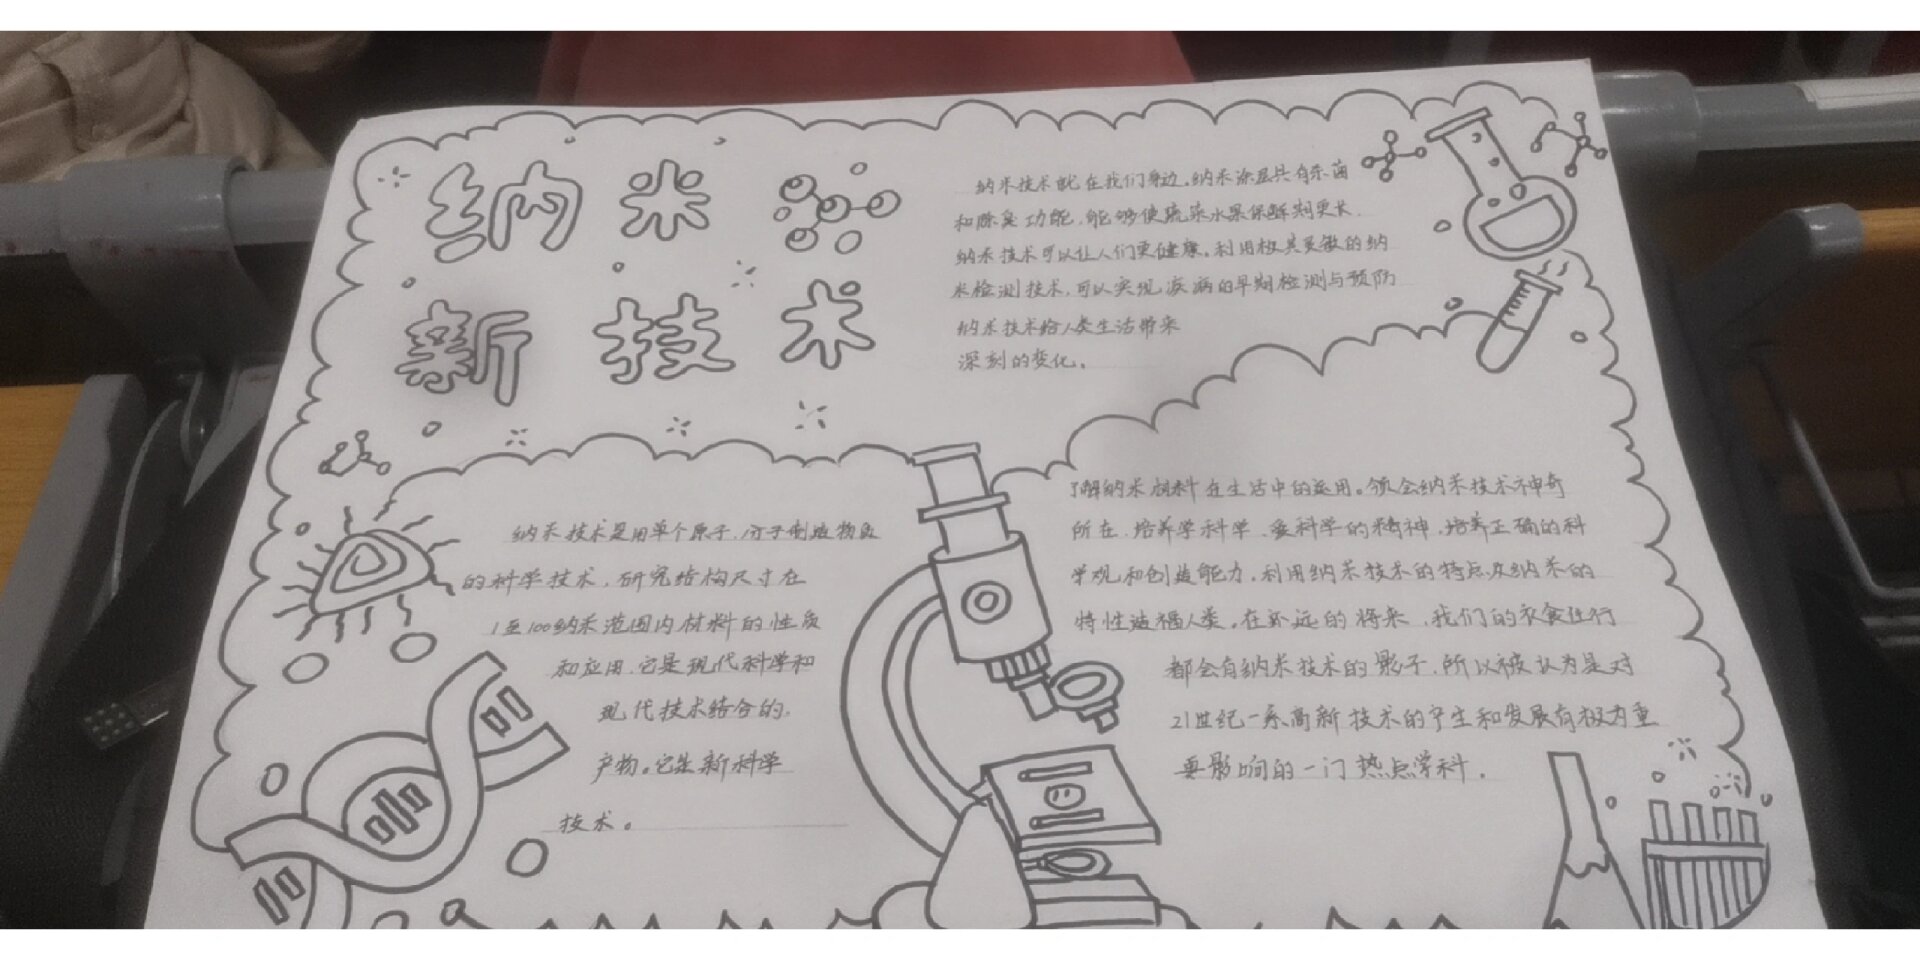 纳米
新技术
纳米技术就在我们身边。纳米涂层具有杀菌
和除臭功能，能够使蔬菜水果保鲜期更长，
纳米技术可以让人们更健康。利用极其灵敏的纳
米检测技术，可以实现疾病的早期检测与预防
纳米技术给人类生活带来
深刻的变化。
纳米技术是用单个原子、分子制造物质
的科学技术，研究结构尺寸在
1至100纳米范围内材料的性质
和应用，它是现代科学和
现代技术结合的
产物。它是新科学
技术。
了解纳米材料在生活中的运用。领会纳米技术神奇
所在，培养学科学、爱科学的精神，培养正确的科
学观和创造能力，利用纳米技术的特点及纳米的
特性造福人类。在不远的将来，我们的衣食住行
都会有纳米技术的影子，所以被认为是对
21世纪一系高新技术的产生和发展有极为重
要影响的一门热点学科。